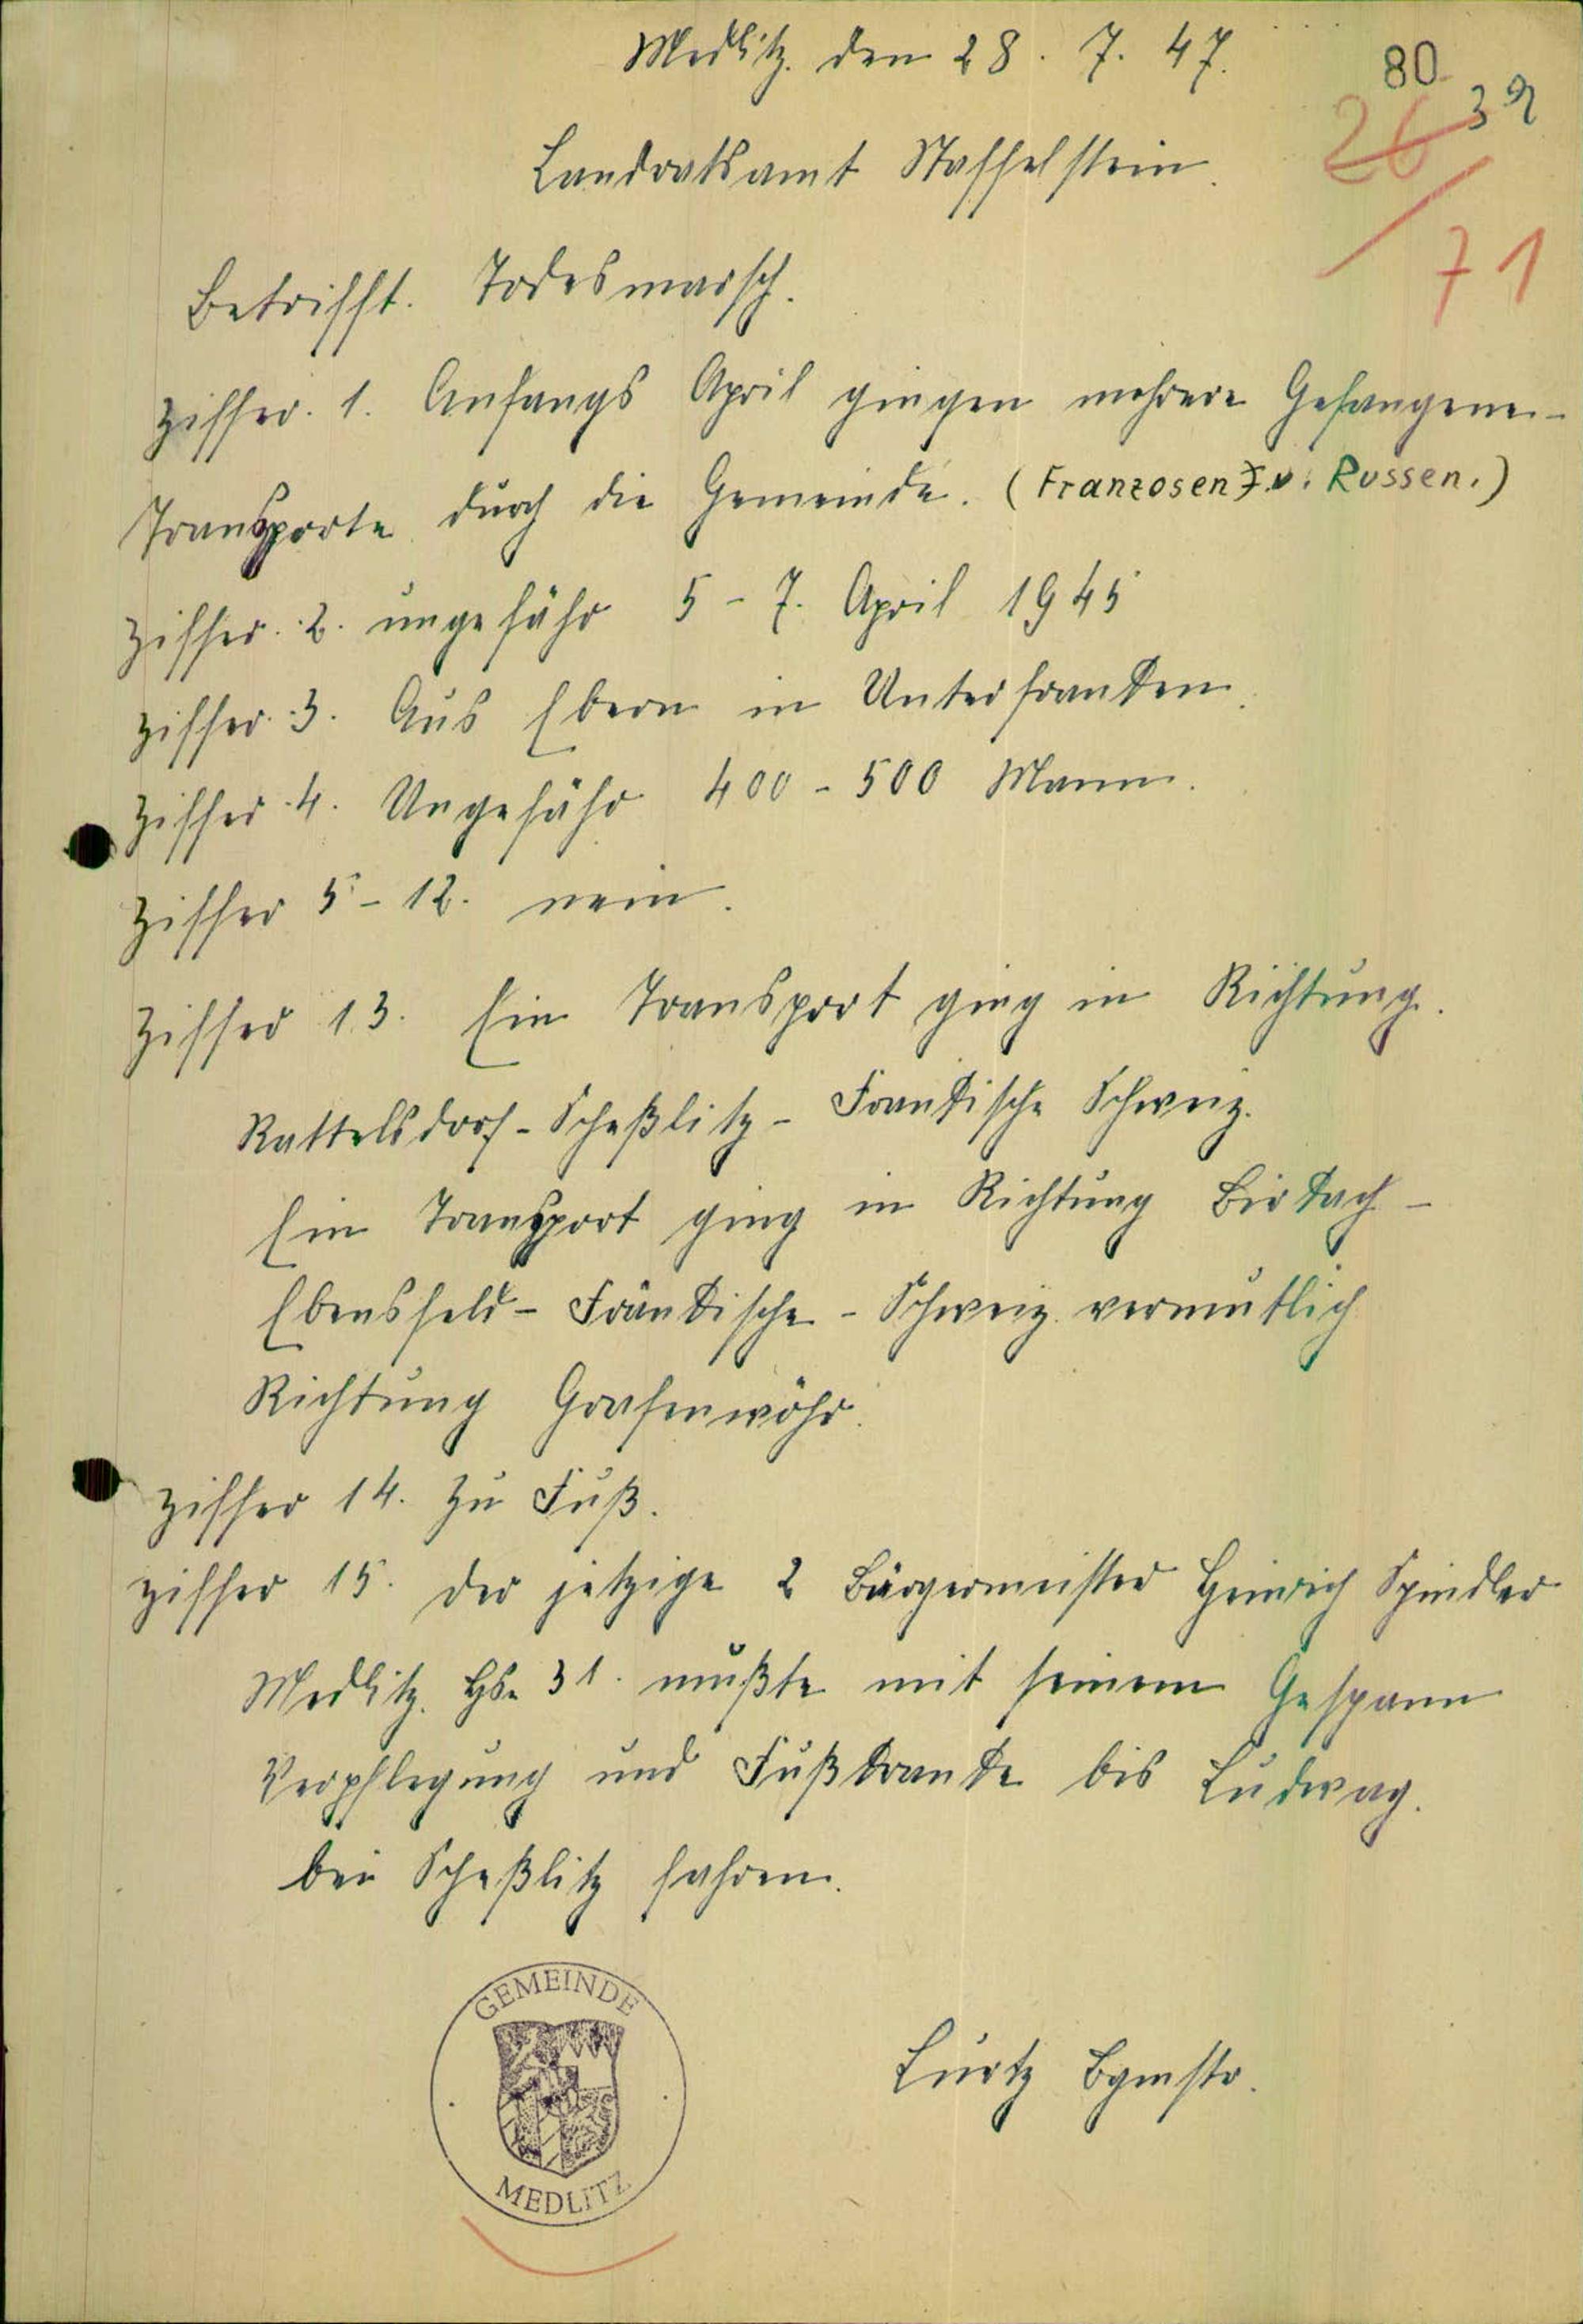 Medlitz. den 28. 7. 47.
80
26 39
71
Landratsamt Staffelstein.
Betrifft. Todesmarsch.
Ziffer. 1. Anfangs April gingen mehrere Gefangenen-
Transporte durch die Gemeinde. (Franzosen u. Russen.)
Ziffer. 2. ungefähr 5 - 7. April 1945
Ziffer. 3. Aus Ebern in Unterfranken.
Ziffer. 4. Ungefähr 400 - 500 Mann.
Ziffer 5 - 12. nein.
Ziffer 13. Ein Transport ging in Richtung.
Rattelsdorf - Scheßlitz - Frankische Schweiz.
Ein Transport ging in Richtung Birkach -
Ebensfeld - Fränkische - Schweiz. vermutlich
Richtung Grafenwöhr.
Ziffer 14. Zu Fuß.
Ziffer 15. der jetzige 2 Bürgermeister Heinrich Spindler
Medlitz. Hs. 31. mußte mit seinem Gespann
Verpflegung und Fußkranke bis Ludwag.
bei Scheßlitz fahren.
GEMEINDE
MEDLITZ
Lurtz Bgmstr.